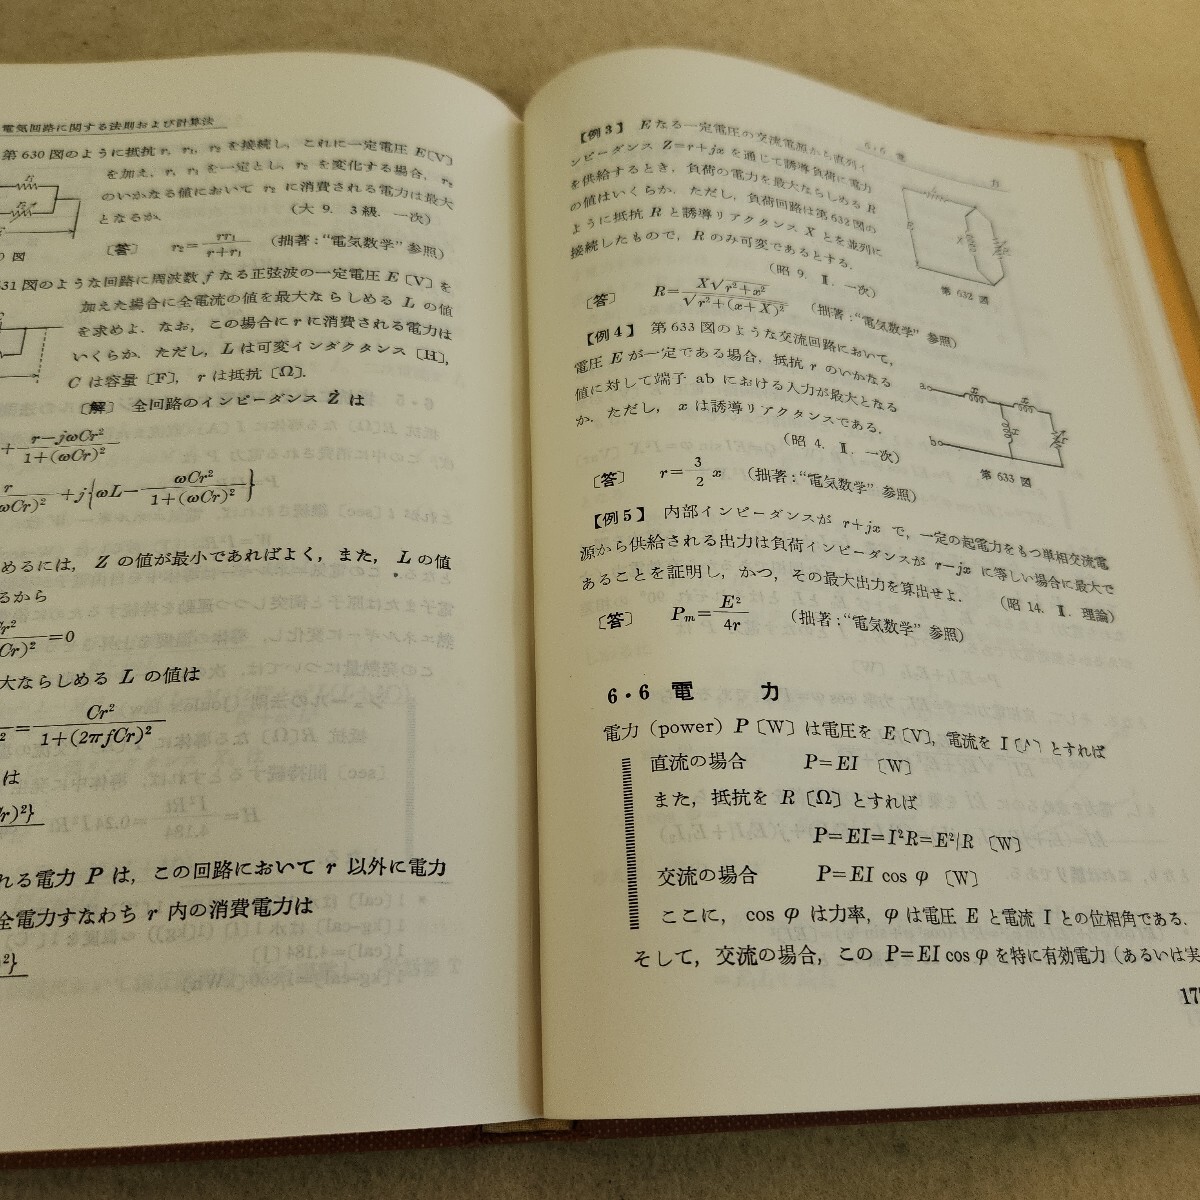 電気回路に関する法則および計算法
第630図のように抵抗 r, r₁, r₂ を接続し,これに一定電圧 E〔V〕
を加え, r, r₁ を一定とし, r₂ を変化する場合, r₂
のいかなる値において r₂ に消費される電力は最大
となるか. (大 9. 3級. 一次)
〔答〕 r₂=rr₁/(r+r₁) (拙著:“電気数学”参照)
図
31図のような回路に周波数 f なる正弦波の一定電圧 E〔V〕を
加えた場合に全電流の値を最大ならしめる L の値
を求めよ. なお, この場合に r に消費される電力は
いくらか. ただし, L は可変インダクタンス〔H〕,
C は容量〔F〕, r は抵抗〔Ω〕.
〔解〕 全回路のインピーダンス Ż は
+ (r−jωCr²)/(1+(ωCr)²)
r/(ωCr)² +j{ωL−ωCr²/(1+(ωCr)²)}
めるには, Z の値が最小であればよく, また, L の値
るから
Cr²/Cr)²=0
大ならしめる L の値は
²=Cr²/(1+(2πfCr)²)
は
r)²}
れる電力 P は, この回路において r 以外に電力
全電力すなわち r 内の消費電力は
)²}
6・6 電 力
【例3】 E なる一定電圧の交流電源から直列イ
ンピーダンス Z=r+jx を通じて誘導負荷に電力
を供給するとき, 負荷の電力を最大ならしめる R
の値はいくらか. ただし, 負荷回路は第632図の
ように抵抗 R と誘導リアクタンス X とを並列に
接続したもので, R のみ可変であるとする.
(昭 9. Ⅱ. 一次)
第 632 図
〔答〕 R=X√(r²+x²)/√(r²+(x+X)²) (拙著:“電気数学”参照)
【例4】 第633図のような交流回路において,
電圧 E が一定である場合, 抵抗 r のいかなる
値に対して端子 ab における入力が最大となる
か. ただし, x は誘導リアクタンスである.
(昭 4. Ⅱ. 一次)
a
b
第 633 図
〔答〕 r=3/2 x (拙著:“電気数学”参照)
【例5】 内部インピーダンスが r+jx で, 一定の起電力をもつ単相交流電
源から供給される出力は負荷インピーダンスが r−jx に等しい場合に最大で
あることを証明し, かつ, その最大出力を算出せよ. (昭 14. Ⅱ. 理論)
〔答〕 Pm=E²/4r (拙著:“電気数学”参照)
6・6 電 力
電力(power)P〔W〕は電圧を E〔V〕, 電流を I〔A〕とすれば
直流の場合 P=EI 〔W〕
また, 抵抗を R〔Ω〕とすれば
P=EI=I²R=E²/R 〔W〕
交流の場合 P=EI cos φ 〔W〕
ここに, cos φ は力率, φ は電圧 E と電流 I との位相角である.
そして, 交流の場合, この P=EI cos φ を特に有効電力(あるいは実
17